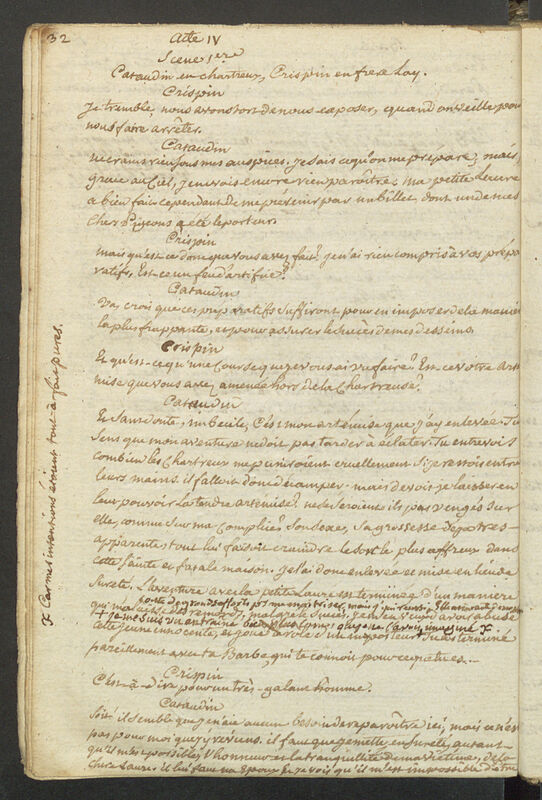 32
Acte IV
Scene 1ere
Cataudin en chartreux, Crispin en frere Lay.
Crispin
Je tremble, nous avons tort de nous exposer, quand on veille pour
nous faire arrêter.
Cataudin
ne crains rien sous mes auspices. je sais ce qu'on me prépare, mais
grace au Ciel, je ne vois encore rien paroître; ma petite Laure
a bien fait cependant de me prévenir par un billet dont un de mes
chers pigeons a été le porteur.
Crispin
mais qu'est ce donc que vous avez fait? je n'ai rien compris à vos prépa
ratifs, Est-ce un feu d'artifice?
Cataudin
Va, crois que ces préparatifs suffiront pour en imposer de la maniere
la plus frappante, et pour assurer le succès de mes desseins
Crispin
Et qu'est-ce qu'une course que je vous ai vu faire? Est-ce votre Arté
mise que vous avez amenée hors de la Chartreuse?
Cataudin
Et sans doute, imbecile, c'est mon artémise que j'ay enlevée. Tu
sens que mon aventure ne doit pas tarder à éclater. Tu entrevois
combien les Chartreux me puniroient cruellement si je restois entre
leurs mains. il falloit donc décamper. mais devois-je laisser en
leur pouvoir la tendre artemise? ne se seroient ils pas vengés sur
elle, comme sur ma complice? Son sexe, sa grossesse
apparente, tout lui faisoit craindre le sort le plus affreux dans
cette sainte et fatale maison. je l'ai donc enlevée et mise en lieu de
sureté. L'aventure avec la petite Laure est terminée d'une maniere
qui me laisse des remords, malgré le succès.
cette jeune innocente, et joué le role d'un imposteur
pareillement avec ta Barbe, qui te connoit pour ce que tu es...
Crispin
C'est-à-dire pour un très-galant homme.
Cataudin
Soit! il semble que je n'aie aucun besoin de reparoître ici, mais ce n'est
pas pour moi que j'y reviens. il faut que je mette en sureté, autant
qu'il m'est possible, l'honneur et la tranquillité de ma victime, de la
chere Laure. il lui faut un Epoux & je vois qu'il m'est impossible d'être
Car mes intentions étoient tout-à-fait pures.